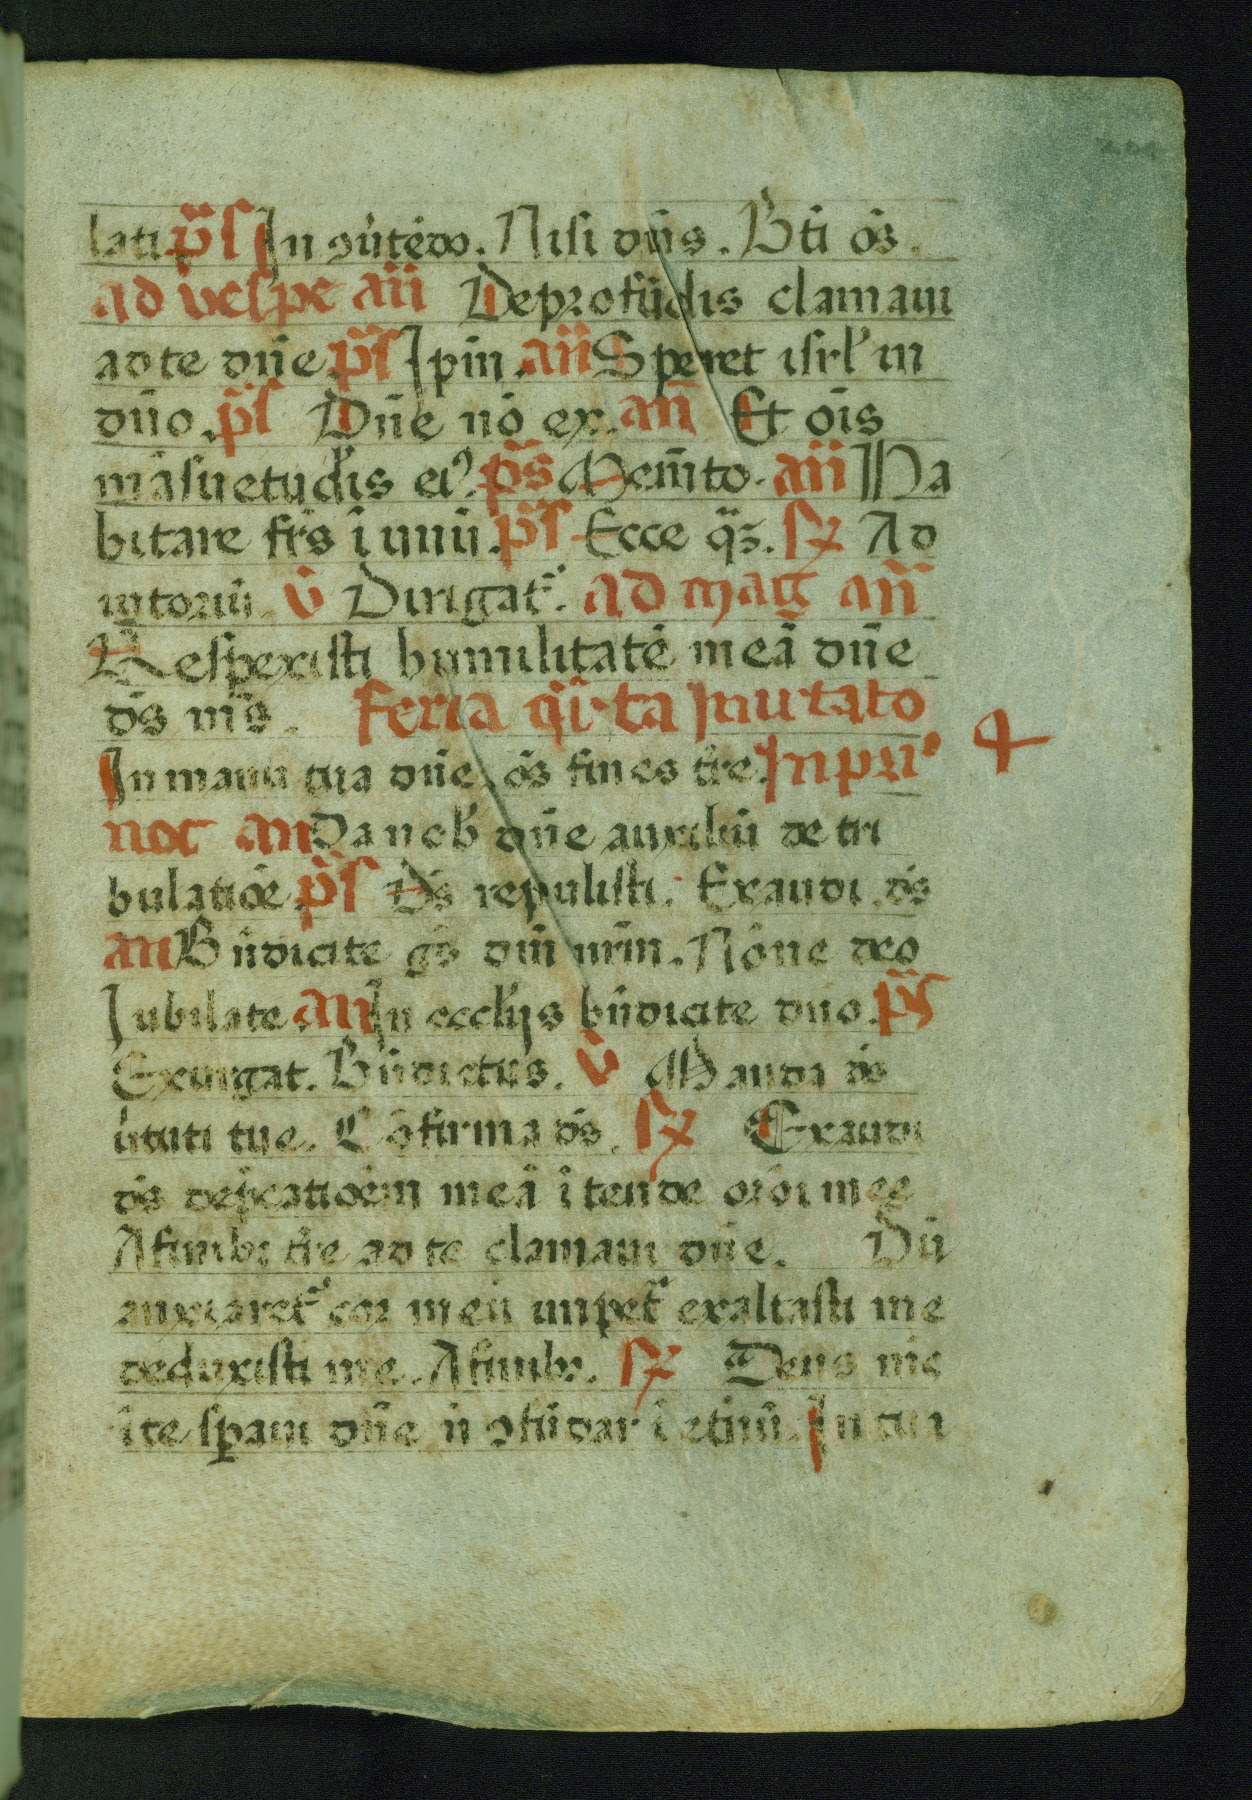 lati p̄s In ꝯūtēdo. Nisi dn̄s. Bt̄i oēs.
ad vespe an̄ Deprofūdis clamaui
ad te dn̄e. p̄s Ipm̄. an̄ Speret isrl̄ in
dn̄o. p̄s Dn̄e nō ex. an̄ Et oīs
māsuetudīs eiꝰ. p̄s Mem̄to. an̄ Ha
bitare fr̄s ī unū. p̄s Ecce q̄. Ad
iutoriū v̄ Dirigat̄. ad mag̅ an̄
Respexisti humilitatē meā dn̄e
ds̄ ms̄. feria qīta Inuitato
In manu tua dn̄e oēs fines tr̄e. In pri
noc an Da nob̄ dn̄e auxiliū de tri
bulatiōe p̄s Ds̄ repulisti. Exaudi ds̄
an Bn̄dicite gs̄ dm̄ nrm̄. Nōne deo
Iubilate an In eccl̄ijs bn̄dicite dn̄o. p̄s
Exurgat. Bn̄dictus. v̄ Manda ds̄
ūtuti tue. Cōfirma ds̄. Exaudi
ds̄ dep̄catiōem meā ītende orōi mee
A finibꝫ tr̄e ad te clamaui dn̄e. Dū
anxiaret̄ cor meū inpet̄ exaltasti me
deduxisti me. A finibꝫ. Deus me
ī te spaui dn̄e n̄ ꝯfūdar ī etnū. In tua